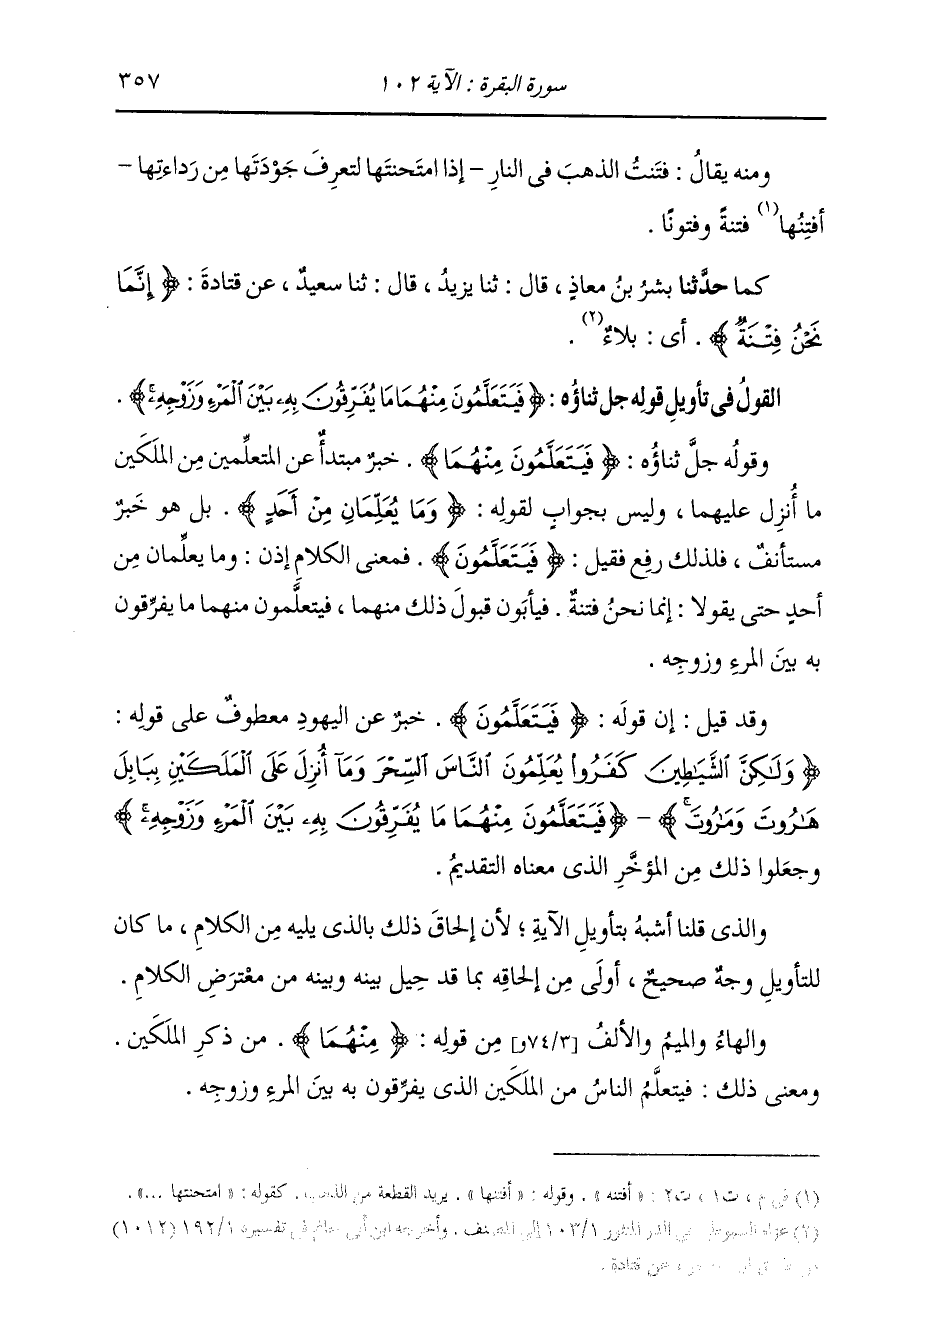 سورة البقرة : الآية ١٠٢ ٣٥٧
ومنه يقالُ : فتَنتُ الذهبَ فى النارِ – إذا امتَحنتَها لتعرِفَ جَوْدَتَها مِن رَداءتِها –
أفتِنُها(١) فتنةً وفتونًا .
كما حدَّثنا بشرُ بنُ معاذٍ ، قال : ثنا يزيدُ ، قال : ثنا سعيدٌ ، عن قتادةَ : ﴿ إِنَّمَا
نَحْنُ فِتْنَةٌ ﴾ . أى : بلاءٌ(٢) .
القولُ فى تأويلِ قولِه جل ثناؤُه : ﴿ فَيَتَعَلَّمُونَ مِنْهُمَا مَا يُفَرِّقُونَ بِهِۦ بَيْنَ ٱلْمَرْءِ وَزَوْجِهِۦۚ ﴾ .
وقولُه جلَّ ثناؤُه : ﴿ فَيَتَعَلَّمُونَ مِنْهُمَا ﴾ . خبرٌ مبتدأٌ عن المتعلِّمين مِن الملَكَين
ما أُنزِل عليهما ، وليس بجوابٍ لقولِه : ﴿ وَمَا يُعَلِّمَانِ مِنْ أَحَدٍ ﴾ . بل هو خَبرٌ
مستأنفٌ ، فلذلك رفِع فقيل : ﴿ فَيَتَعَلَّمُونَ ﴾ . فمعنى الكلامِ إذن : وما يعلِّمان مِن
أحدٍ حتى يقولا : إنما نحنُ فتنةٌ . فيأبَون قبولَ ذلك منهما ، فيتعلَّمون منهما ما يفرِّقون
به بينَ المرءِ وزوجِه .
وقد قيل : إن قولَه : ﴿ فَيَتَعَلَّمُونَ ﴾ . خبرٌ عن اليهودِ معطوفٌ على قولِه :
﴿ وَلَٰكِنَّ ٱلشَّيَٰطِينَ كَفَرُوا۟ يُعَلِّمُونَ ٱلنَّاسَ ٱلسِّحْرَ وَمَآ أُنزِلَ عَلَى ٱلْمَلَكَيْنِ بِبَابِلَ
هَٰرُوتَ وَمَٰرُوتَۚ ﴾ – ﴿ فَيَتَعَلَّمُونَ مِنْهُمَا مَا يُفَرِّقُونَ بِهِۦ بَيْنَ ٱلْمَرْءِ وَزَوْجِهِۦۚ ﴾
وجعَلوا ذلك مِن المؤخَّرِ الذى معناه التقديمُ .
والذى قلنا أشبهُ بتأويلِ الآيةِ ؛ لأن إلحاقَ ذلك بالذى يليه مِن الكلامِ ، ما كان
للتأويلِ وجهٌ صحيحٌ ، أولَى مِن إلحاقِه بما قد حِيل بينه وبينه من معْترَضِ الكلامِ .
والهاءُ والميمُ والألفُ [٧٤/٣و] مِن قولِه : ﴿ مِنْهُمَا ﴾ . من ذكرِ الملَكَين .
ومعنى ذلك : فيتعلَّمُ الناسُ من الملَكَين الذى يفرِّقون به بينَ المرءِ وزوجِه .
(١) فى م ، ت١ ، ت٢ : « أفتنه » . وقوله : « أفتنها » . يريد القطعة من الذهب . كقوله : « امتحنتها ...» .
(٢) عزاه السيوطى فى الدر المنثور ١٠٣/١ إلى المصنف . وأخرجه ابن أبى حاتم فى تفسيره ١٩٢/١ (١٠١٢)
عن قتادة .